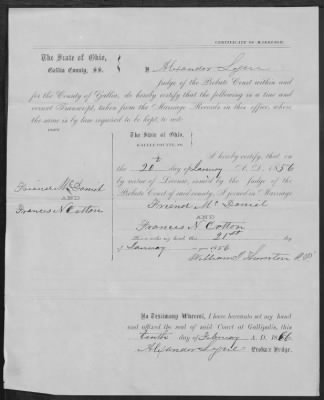 CERTIFICATE OF MARRIAGE.
The State of Ohio,
Gallia County, SS.
I, Alexander
Judge of the Probate Court within and
for the County of Gallia, do hereby certify that the following is a true and
correct Transcript, taken from the Marriage Records in this office, where
the same is by law required to be kept, to wit:
The State of Ohio,
GALLIA COUNTY, SS.
I hereby certify, that on
the 20th day of January A. D. 1856
by virtue of License, issued by the Judge of the
Probate Court of said county, I joined in Marriage
Friend Mc Daniel
AND
Francis N. Cotton
Given under my hand, this 21st day
of January 1856
William J. Thurston
Mc Daniel
AND
Francis N. Cotton
In Testimony Whereof, I have hereunto set my hand
and affixed the seal of said Court at Gallipolis, this
tenth day of February A. D. 1866
Alexander
Probate Judge.